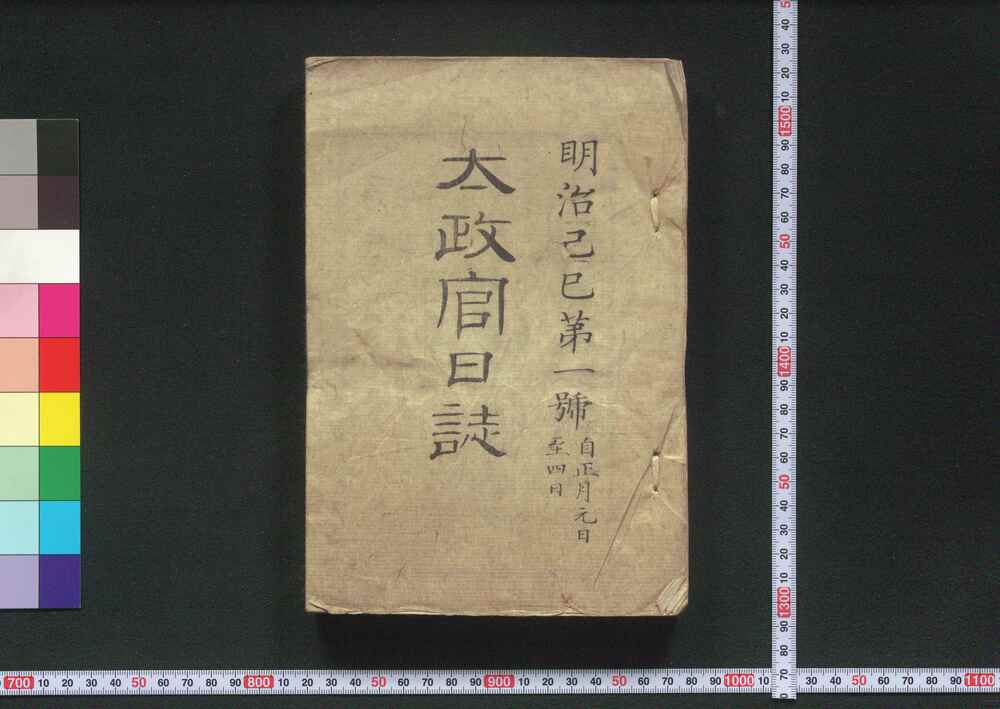 明治己巳第一號
自正月元日
至四日
太政官日誌
5
40
30
20
10
1500
90
80
70
60
50
40
30
20
10
1400
90
80
70
60
50
40
30
20
10
1300
90
80
70
700 10 20 30 40 50 60 70 80 90 800 10 20 30 40 50 60 70 80 90 900 10 20 30 40 50 60 70 80 90 1000 10 30 40 50 60 70 80 90 1100